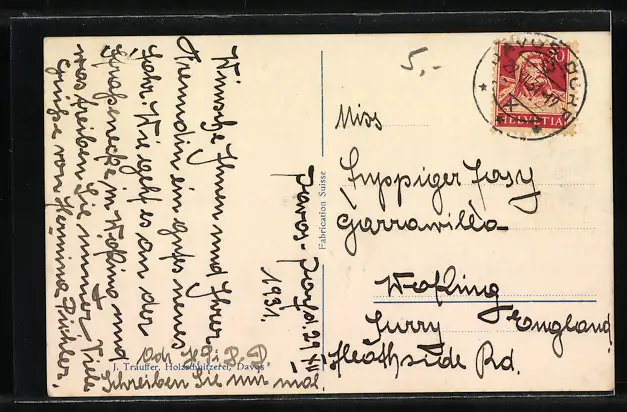 5,-
DAVOS DORF
HELVETIA
Davos-Dorf, d. 29. XII
1931.
Wünsche Ihnen und Ihrer
Freundin ein gutes neues
Jahr. Wie geht es an der
Straßenecke in Woking und
was treiben Sie immer. Viele
Grüße von Hermina
Schreiben Sie mir mal.
J. Trauffer, Holzschnitzerei, Davos
Fabrication Suisse
Miss
Suppiger Josy
Garrawilla
Woking
Surry England
Heathside Rd.